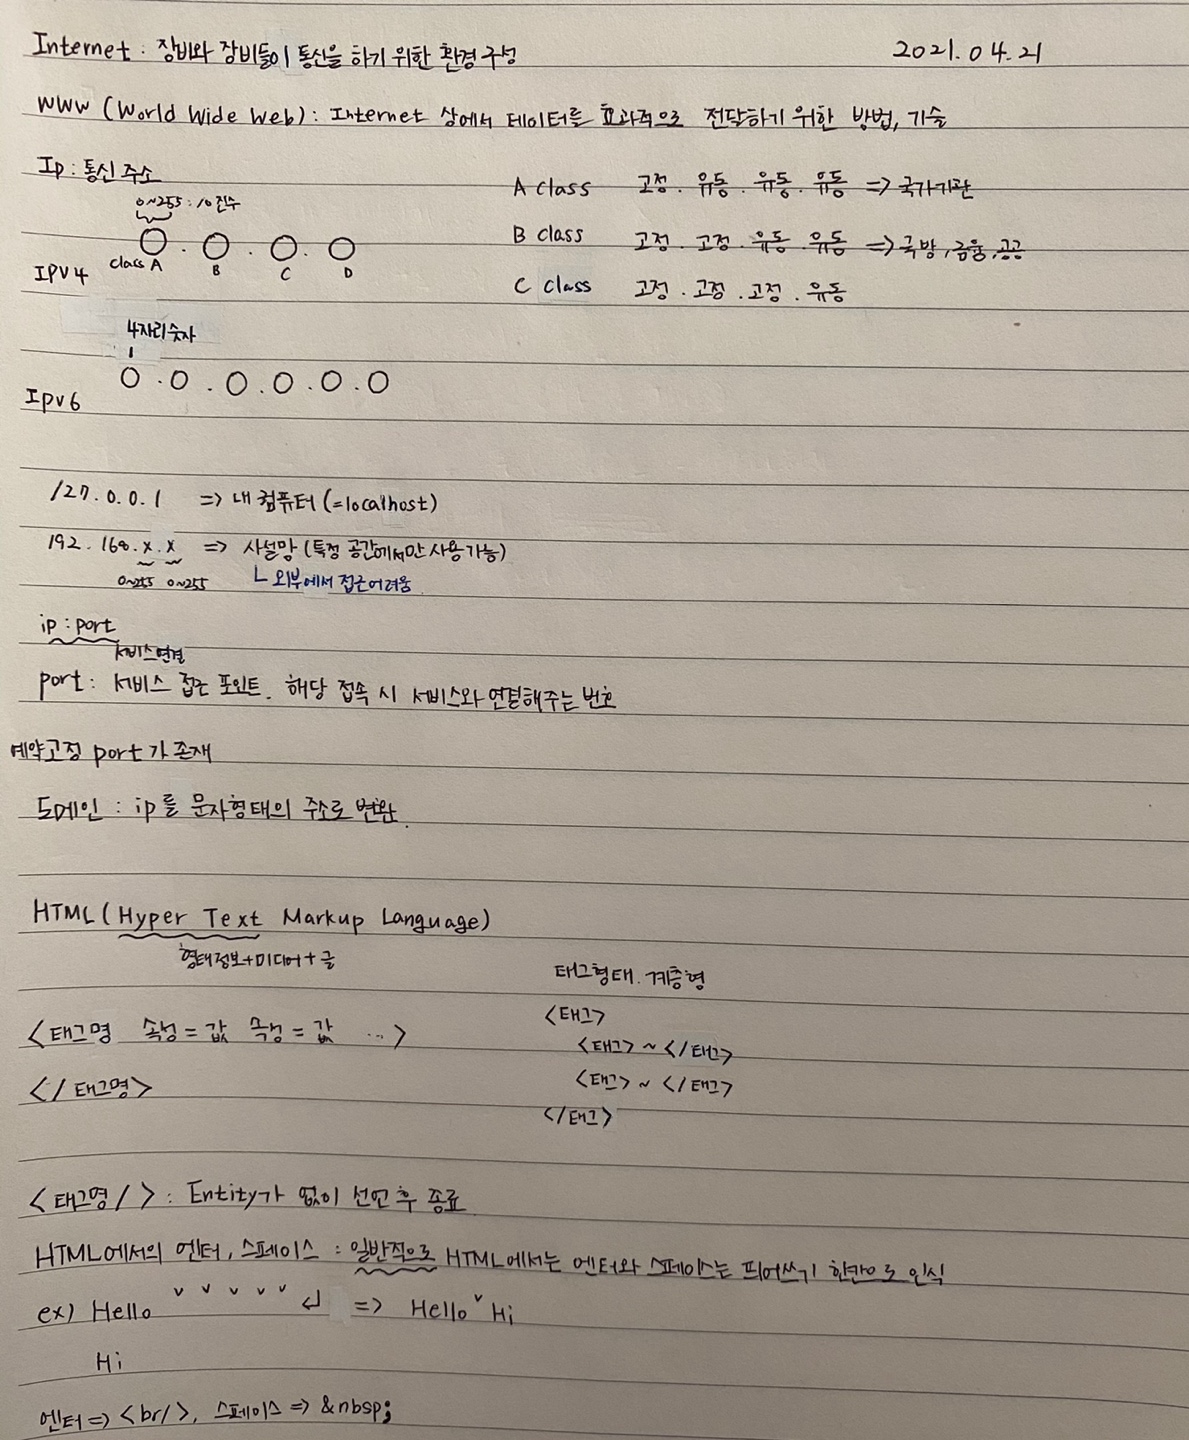 Internet : 장비와 장비들이 통신을 하기 위한 환경 구성
2021.04.21
WWW (World Wide Web) : Internet 상에서 데이터를 효과적으로 전달하기 위한 방법, 기술
Ip : 통신 주소
0~255 : 10진수
IPV4 class A . B . C . D
A class 고정 . 유동 . 유동 . 유동 => 국가기관
B class 고정 . 고정 . 유동 . 유동 => 국방, 금융, 공공
C class 고정 . 고정 . 고정 . 유동
4자리 숫자
Ipv6 O . O . O . O . O . O
127.0.0.1 => 내 컴퓨터 (=localhost)
192.168.x.x => 사설망 (특정 공간에서만 사용가능)
0~255 0~255 ㄴ 외부에서 접근어려움
ip : port
서비스연결
port : 서비스 접근 포인트. 해당 접속 시 서비스와 연결해주는 번호
예약고정 port가 존재
도메인 : ip를 문자형태의 주소로 변환.
HTML (Hyper Text Markup Language)
형태정보+미디어+글
<태그명 속성=값 속성=값 ...>
</태그명>
태그형태. 계층형
<태그>
<태그> ~ </태그>
<태그> ~ </태그>
</태그>
<태그명/> : Entity가 없이 선언 후 종료
HTML에서의 엔터, 스페이스 : 일반적으로 HTML에서는 엔터와 스페이스는 띄어쓰기 한칸으로 인식
ex) Hello ˅ ˅ ˅ ˅ ˅ ↵ => Hello˅Hi
Hi
엔터=> <br/>, 스페이스=> &nbsp;